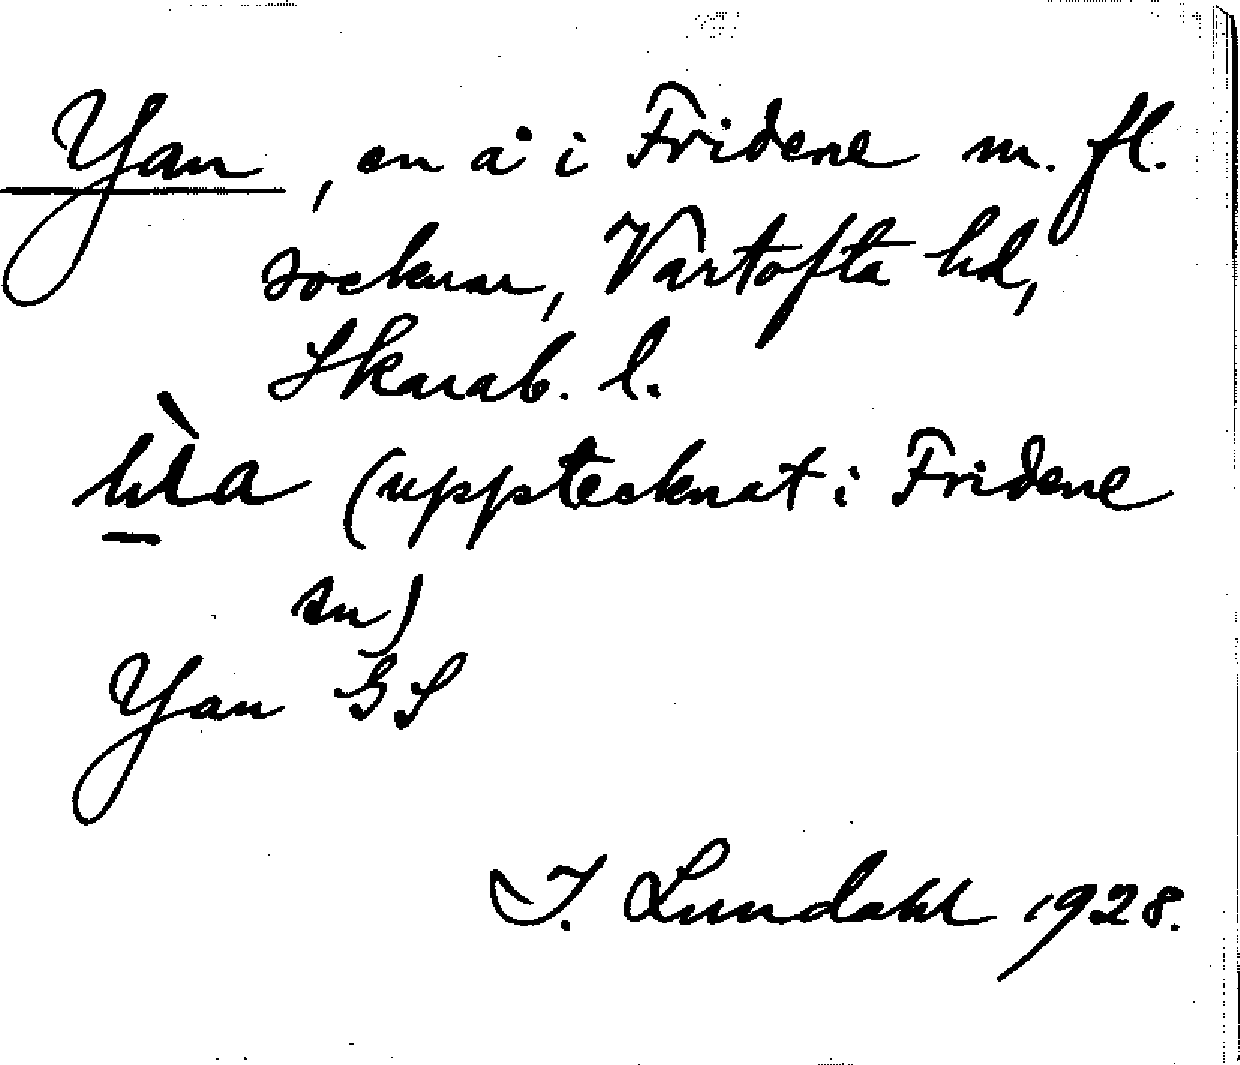 Yan, en å i Fridene m. fl.
socknar, Vartofta hd,
Skarab. l.
(upptecknat i Fridene
sn)
Yan GS
I. Lundahl 1928.